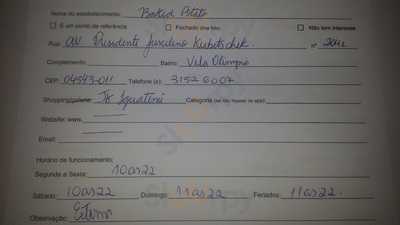 Nome do estabelecimento: Basked Potato
É um ponto de referência Fechado (na loja) Não tem interesse
Rua: Av. Presidente Juscelino Kubitschek. nº 2041
Complemento: Bairro: Vila Olímpia
CEP: 04543-011 Telefone (s): 3152 6007
Shopping/galeria: JK Iguatemi Categoria
Website: www.
Email:
Horário de funcionamento:
Segunda a Sexta: 10 as 22
Sábado: 10 as 22 Domingo: 11 as 22 Feriados: 11 as 22.
Observação: